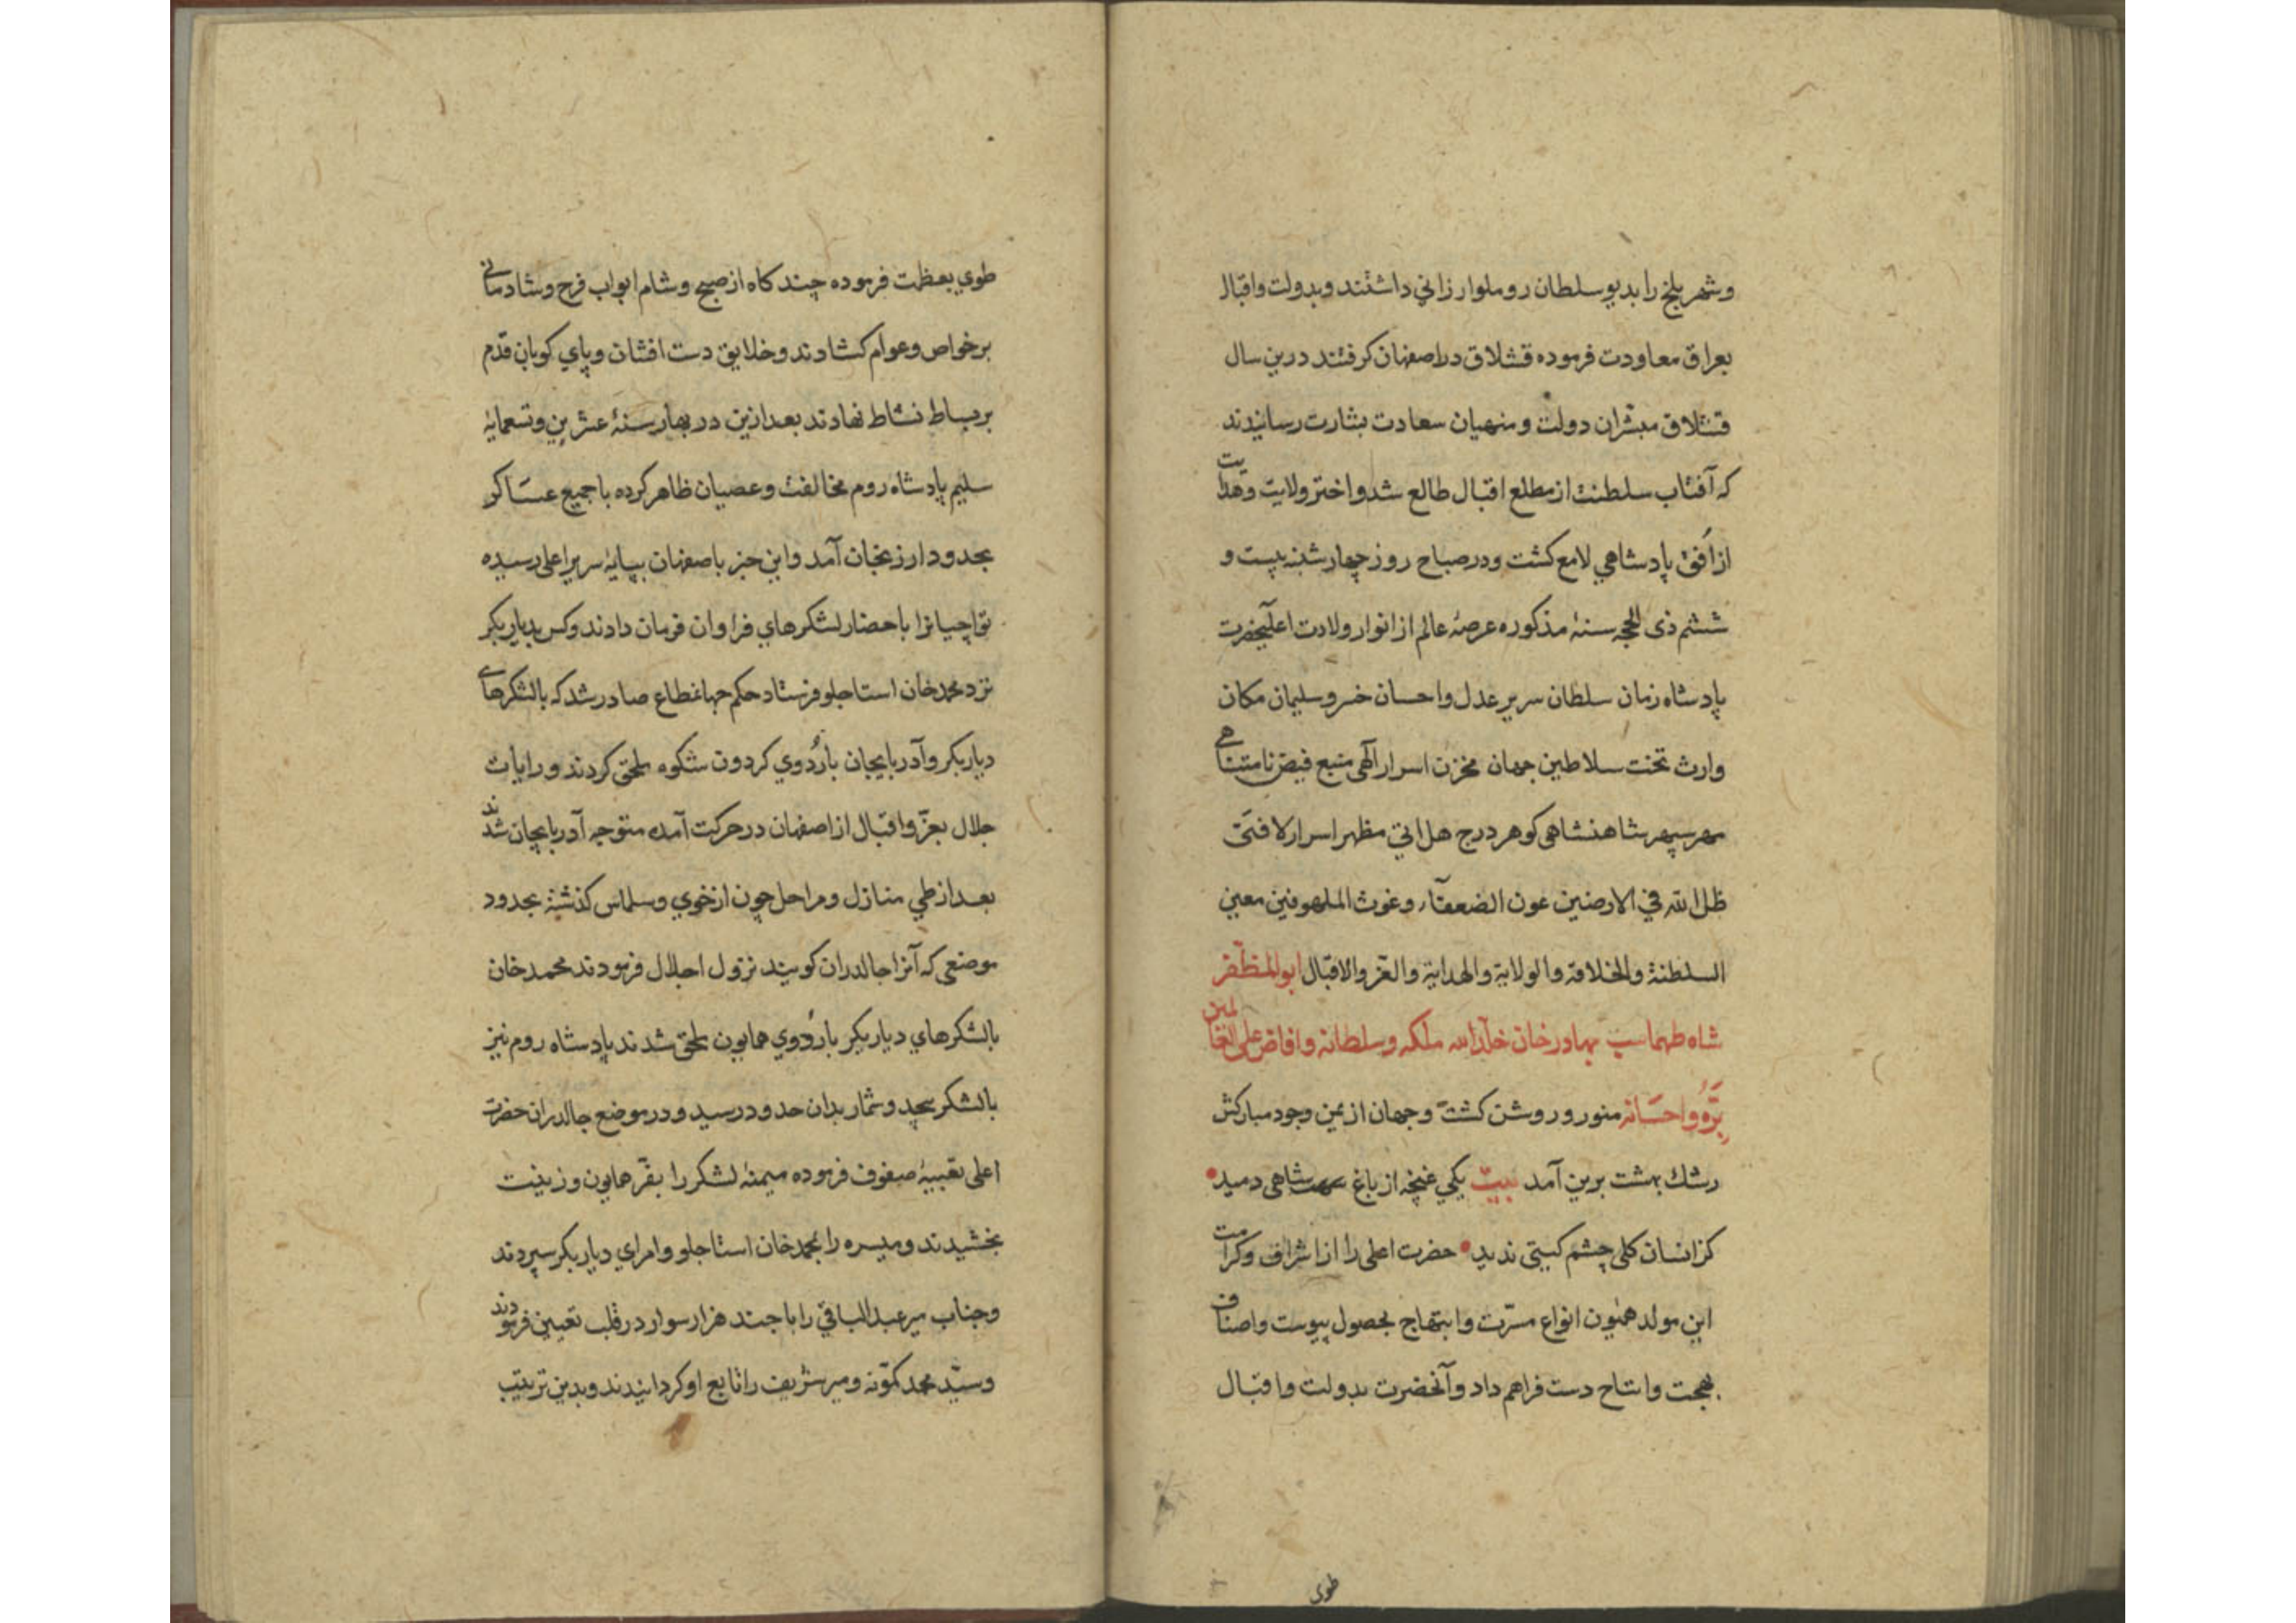 وشهر بلخ را بدیو سلطان روملو ارزانی داشتند وبدولت واقبال
بعراق معاودت فرموده قشلاق در اصفهان کرفتند درین سال
قشلاق مبشّران دولت ومنهیان سعادت بشارت رسانیدند
که آفتاب سلطنت از مطلع اقبال طالع شد واختر ولایت وهدایت
از اُفق پادشاهی لامع کشت ودر صباح روز چهارشنبه بیست و
ششم ذی الحجه سنهٔ مذکوره عرصهٔ عالم از انوار ولادت اعلیحضرت
پادشاه زمان سلطان سریر عدل واحسان خسرو سلیمان مکان
وارث تخت سلاطین جهان مخزن اسرار آلهی منبع فیض نامتناهی
مهر سپهر شاهنشاهی کوهر درج هل اتی مظهر اسرار لافتی
ظل الله فی الارضین عون الضعفآء وغوث الملهوفین معین
السلطنة والخلافة والولایة والهدایة والعزّ والاقبال ابوالمظفّر
شاه طهماسب بهادر خان خلّد الله ملکه وسلطانه وافاض علی العالمین
برّه واحسانه منور وروشن کشت وجهان از یمن وجود مبارکش
رشك بهشت برین آمد بیت یکی غنچه از باغ شاهی دمید
کزانسان کلی چشم کیتی ندید حضرت اعلی را از اشراف وکرامت
این مولد همیون انواع مسرّت وابتهاج بحصول پیوست واصناف
بهجت وانتاح دست فراهم داد وآنحضرت بدولت واقبال
طوی
طوی بعظمت فرموده چند کاه از صبح وشام ابواب فرح وشادمانی
بر خواص وعوام کشادند وخلایق دست افشان وپای کوبان قدم
بر بساط نشاط نهادند بعد ازین در بهار سنهٔ عشرین وتسعمایهٔ
سلیم پادشاه روم مخالفت وعصیان ظاهر کرده با جمیع عساکر
بحدود ارزنجان آمد واین خبر باصفهان بپایهٔ سریر اعلی رسیده
تواچیانرا باحضار لشکرهای فراوان فرمان دادند وکس بدیاربکر
نزد محمد خان استاجلو فرستاد حکم جهانمطاع صادر شد که با لشکرهای
دیاربکر وآذربایجان باردُوی کردون شکوه ملحق کردند ورایات
جلال بعزّ واقبال از اصفهان در حرکت آمده متوجه آذربایجان شدند
بعد از طی منازل ومراحل چون از خوی وسلماس کذشته بحدود
موضعی که آنرا جالدران کویند نزول اجلال فرمودند محمد خان
بالشکرهای دیاربکر باردُوی همایون ملحق شدند پادشاه روم نیز
بالشکر بیحد وشمار بدان حدود رسید ودر موضع جالدران حضرت
اعلی تعبیهٔ صفوف فرموده میمنهٔ لشکر را بفرّ همایون وزینت
بخشیدند ومیسره را بمحمد خان استاجلو وامرای دیاربکر سپردند
وجناب میر عبدالباقی را با چند هزار سوار در قلب تعیین فرمودند
وسیّد محمد کمّونه ومیر شریف را تابع او کردانیدند وبدین ترتیب